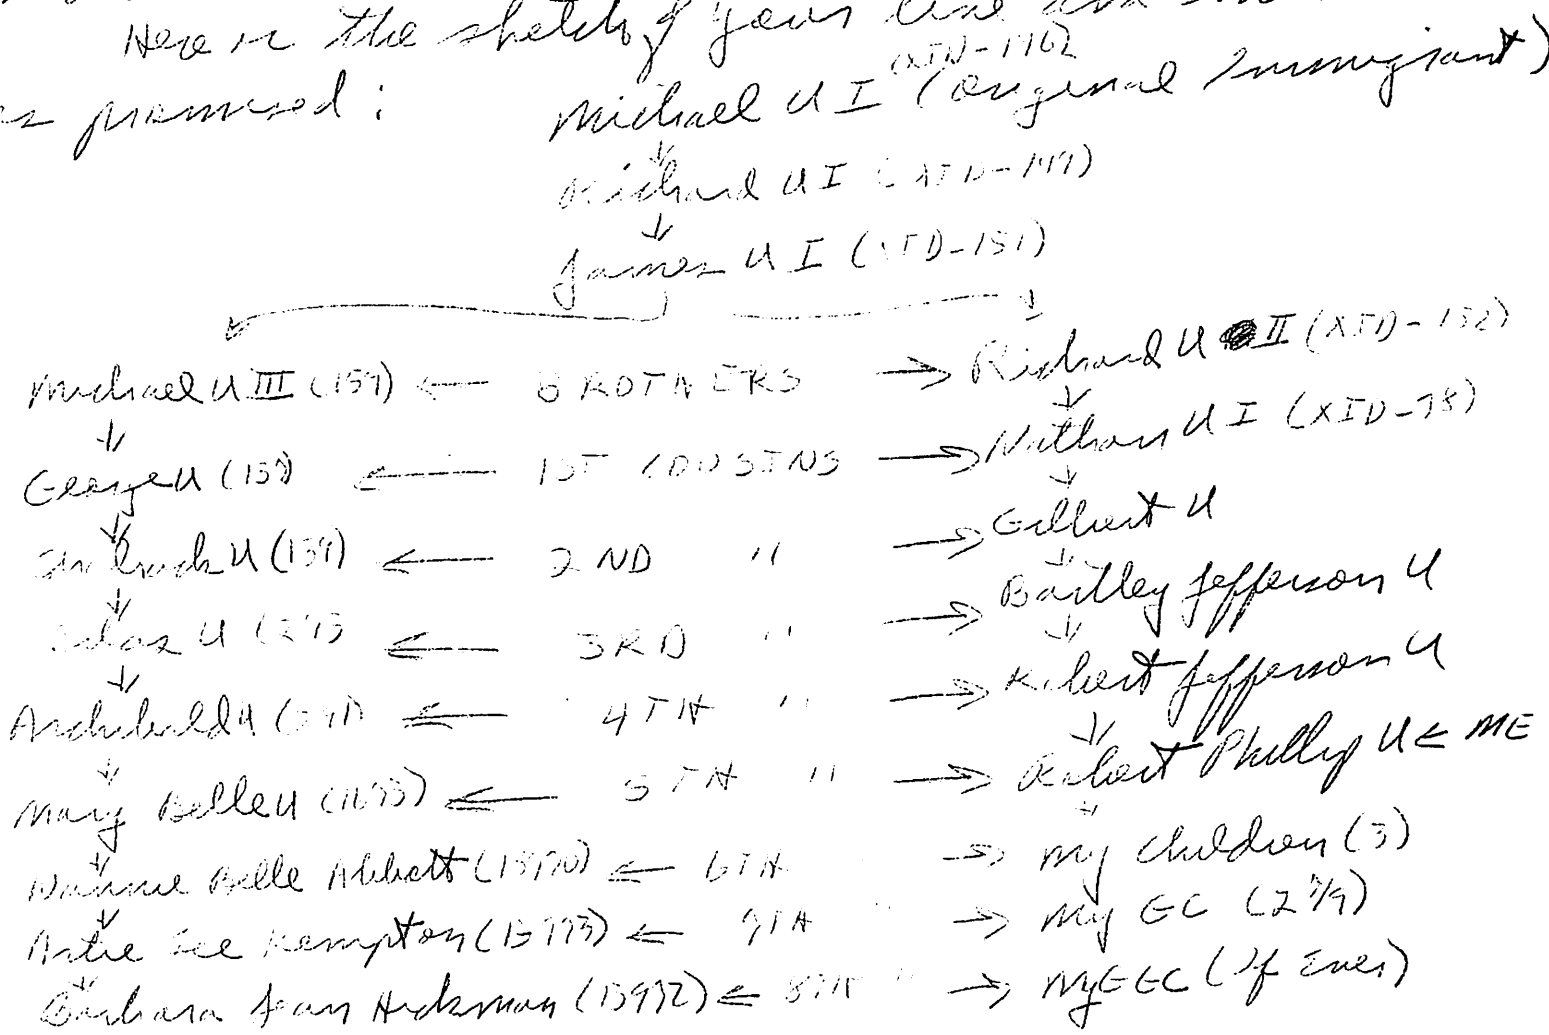 Here is the sketch of your line and
as promised: Michael U I (Original Immigrant)
Richard U I (XID-149)
James U I (XID-151)
Michael U III (159) ← BROTHERS → Richard U II (XID-152)
George U (138) ← 1ST COUSINS → Nathan U I (XID-78)
U (139) ← 2ND " → Gilbert U
U ← 3RD " → Bartley Jefferson U
Archibald U ← 4TH " → Robert Jefferson U
Mary Belle U ← 5TH " → Robert Phillip U ← ME
Nannie Belle Abbott ← 6TH → My children (3)
Artie Lee Kempton ← 7TH " → My GC
Barbara Jean Hickman ← 8TH " → My GGC (If Ever)